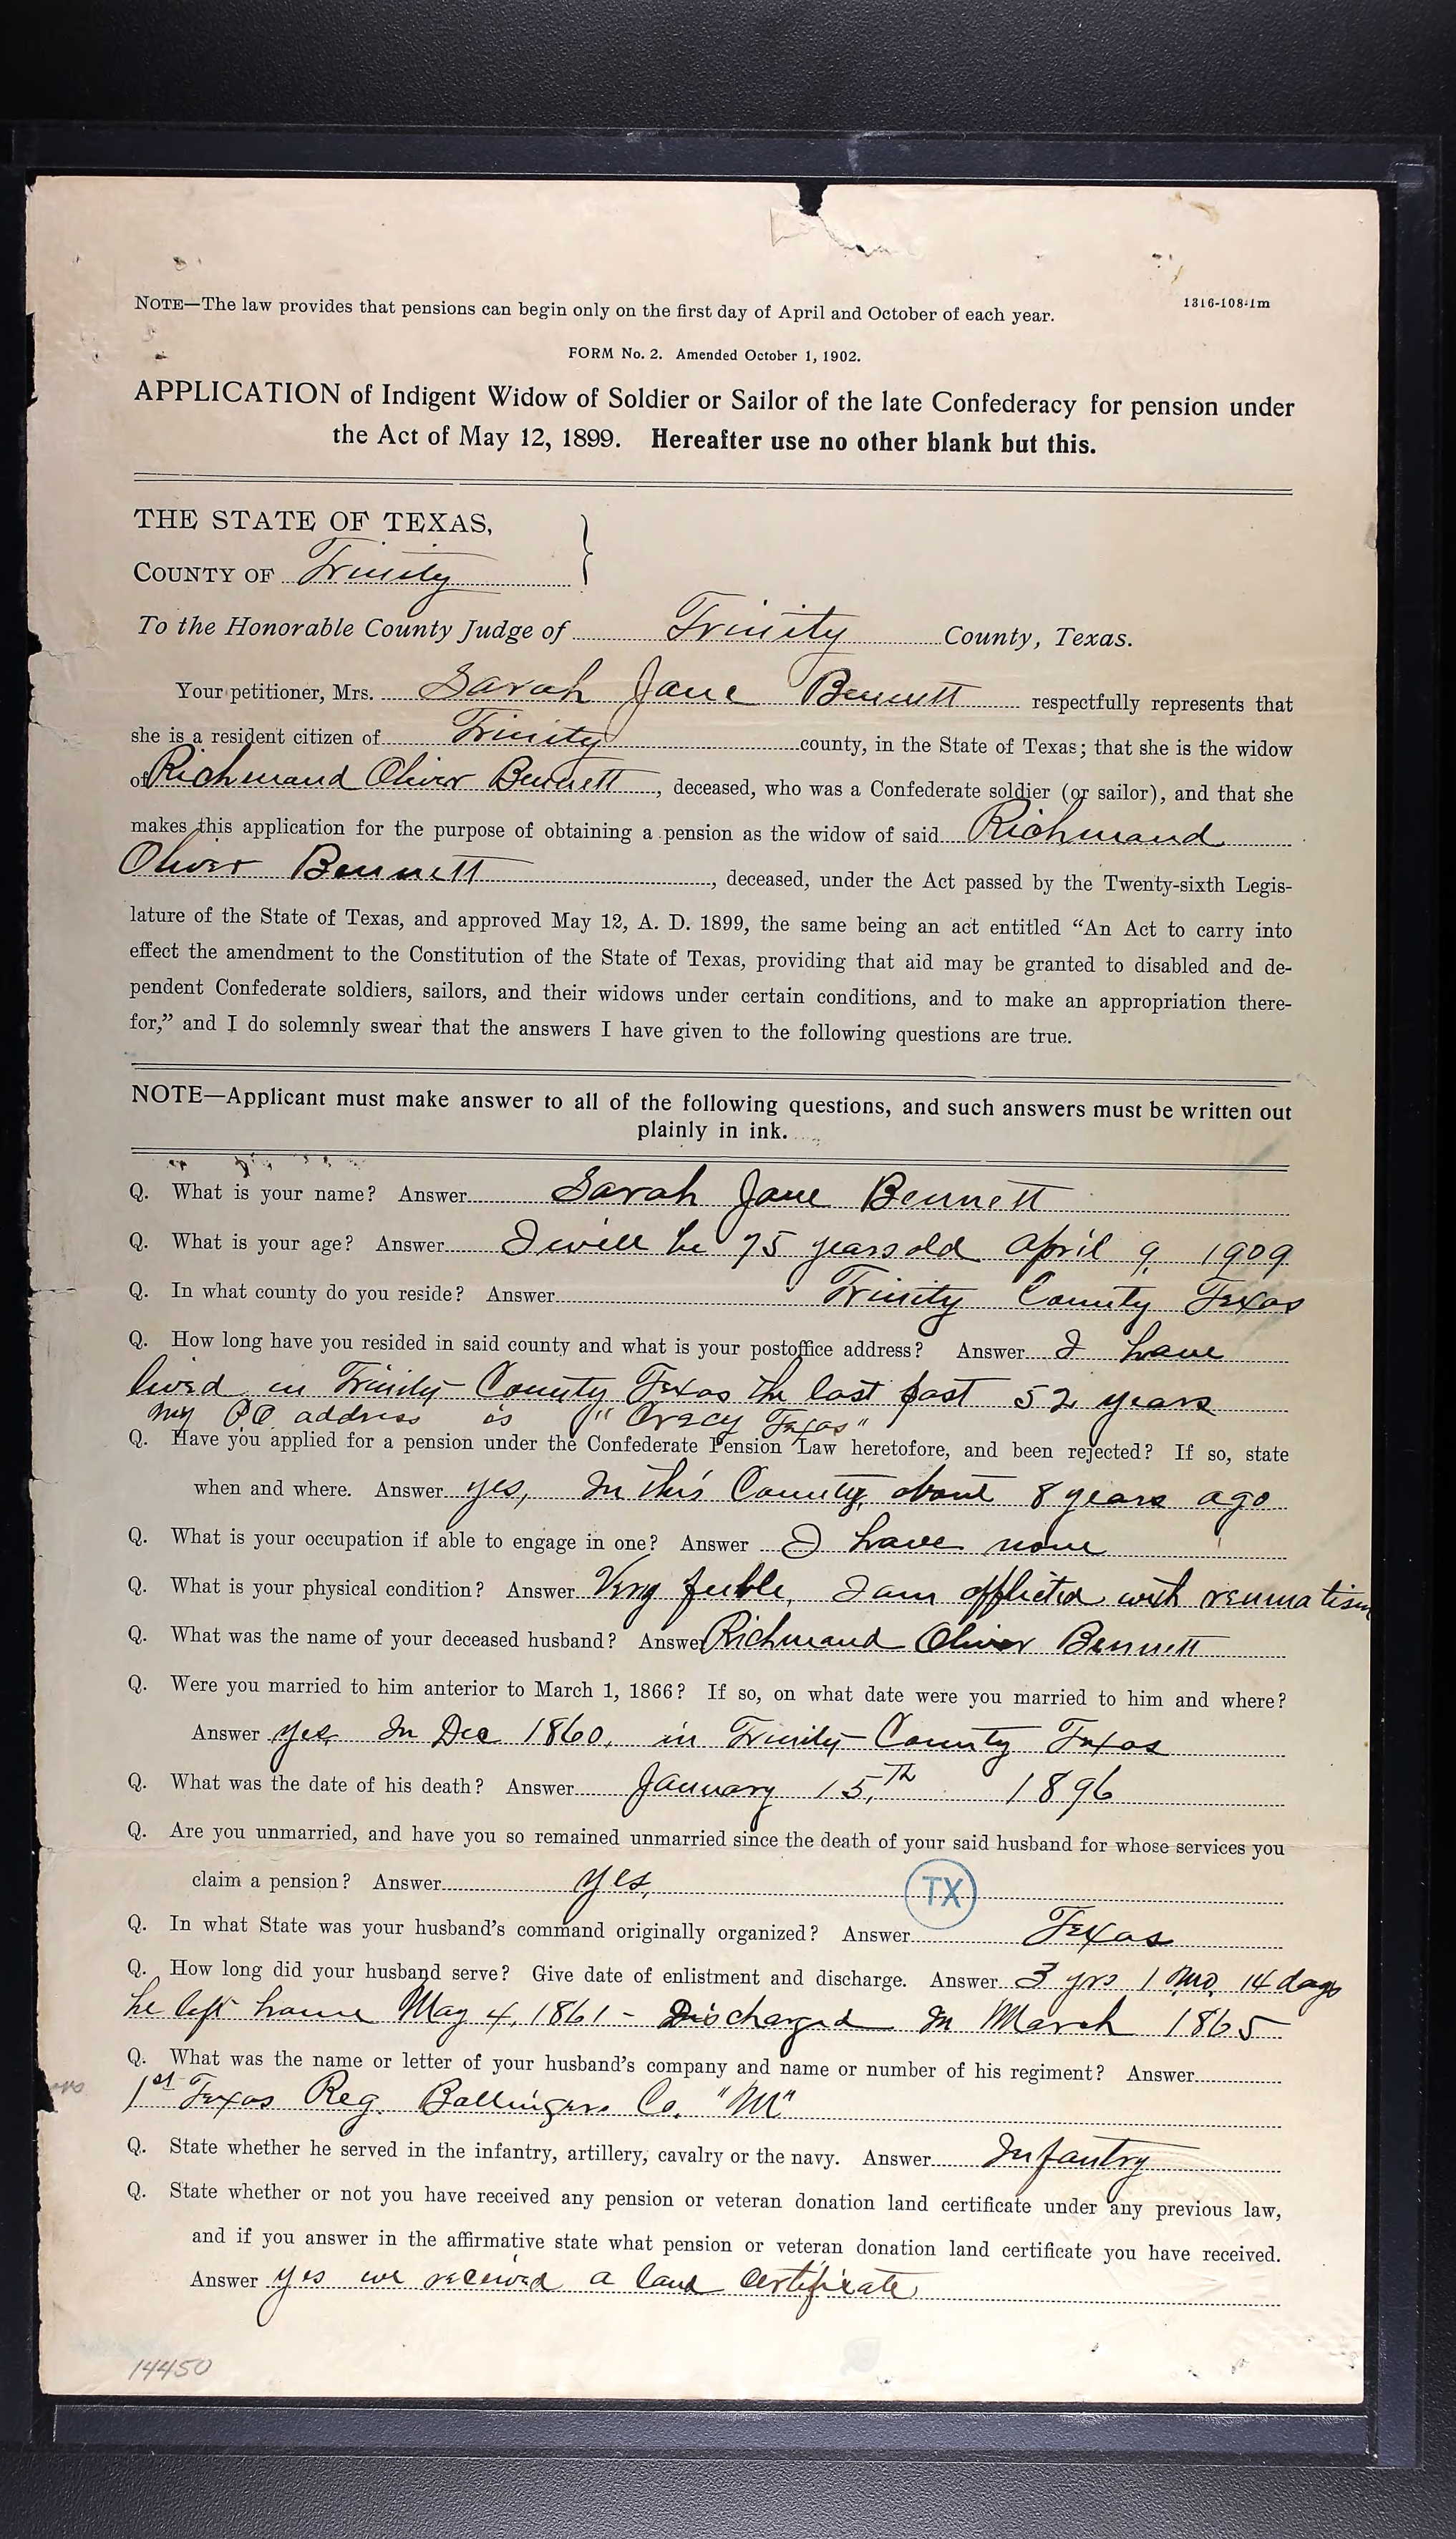 NOTE—The law provides that pensions can begin only on the first day of April and October of each year.
1316-108-1m
FORM No. 2. Amended October 1, 1902.
APPLICATION of Indigent Widow of Soldier or Sailor of the late Confederacy for pension under
the Act of May 12, 1899. Hereafter use no other blank but this.
THE STATE OF TEXAS,
COUNTY OF Trinity
To the Honorable County Judge of Trinity County, Texas.
Your petitioner, Mrs. Sarah Jane Bennett respectfully represents that
she is a resident citizen of Trinity county, in the State of Texas; that she is the widow
of Richmand Oliver Bennett, deceased, who was a Confederate soldier (or sailor), and that she
makes this application for the purpose of obtaining a pension as the widow of said Richmand
Oliver Bennett, deceased, under the Act passed by the Twenty-sixth Legis-
lature of the State of Texas, and approved May 12, A. D. 1899, the same being an act entitled “An Act to carry into
effect the amendment to the Constitution of the State of Texas, providing that aid may be granted to disabled and de-
pendent Confederate soldiers, sailors, and their widows under certain conditions, and to make an appropriation there-
for,” and I do solemnly swear that the answers I have given to the following questions are true.
NOTE—Applicant must make answer to all of the following questions, and such answers must be written out
plainly in ink.
Q. What is your name? Answer Sarah Jane Bennett
Q. What is your age? Answer I will be 75 years old April 9, 1909
Q. In what county do you reside? Answer Trinity County Texas
Q. How long have you resided in said county and what is your postoffice address? Answer I have
lived in Trinity County Texas the last past 52 years
my P.O. address is "Oracy Texas"
Q. Have you applied for a pension under the Confederate Pension Law heretofore, and been rejected? If so, state
when and where. Answer yes, In this County, about 8 years ago
Q. What is your occupation if able to engage in one? Answer I have none
Q. What is your physical condition? Answer Very feeble, I am afflicted with reumatism
Q. What was the name of your deceased husband? Answer Richmand Oliver Bennett
Q. Were you married to him anterior to March 1, 1866? If so, on what date were you married to him and where?
Answer yes, In Dec 1860, in Trinity County Texas
Q. What was the date of his death? Answer January 15,th 1896
Q. Are you unmarried, and have you so remained unmarried since the death of your said husband for whose services you
claim a pension? Answer yes,
TX
Q. In what State was your husband’s command originally organized? Answer Texas
Q. How long did your husband serve? Give date of enlistment and discharge. Answer 3 yrs 1 Mo. 14 days
he left home May 4, 1861 - Discharged In March 1865
Q. What was the name or letter of your husband’s company and name or number of his regiment? Answer
1st Texas Reg. Ballingers Co. "M"
Q. State whether he served in the infantry, artillery, cavalry or the navy. Answer Infantry
Q. State whether or not you have received any pension or veteran donation land certificate under any previous law,
and if you answer in the affirmative state what pension or veteran donation land certificate you have received.
Answer yes we received a land certificate
14450